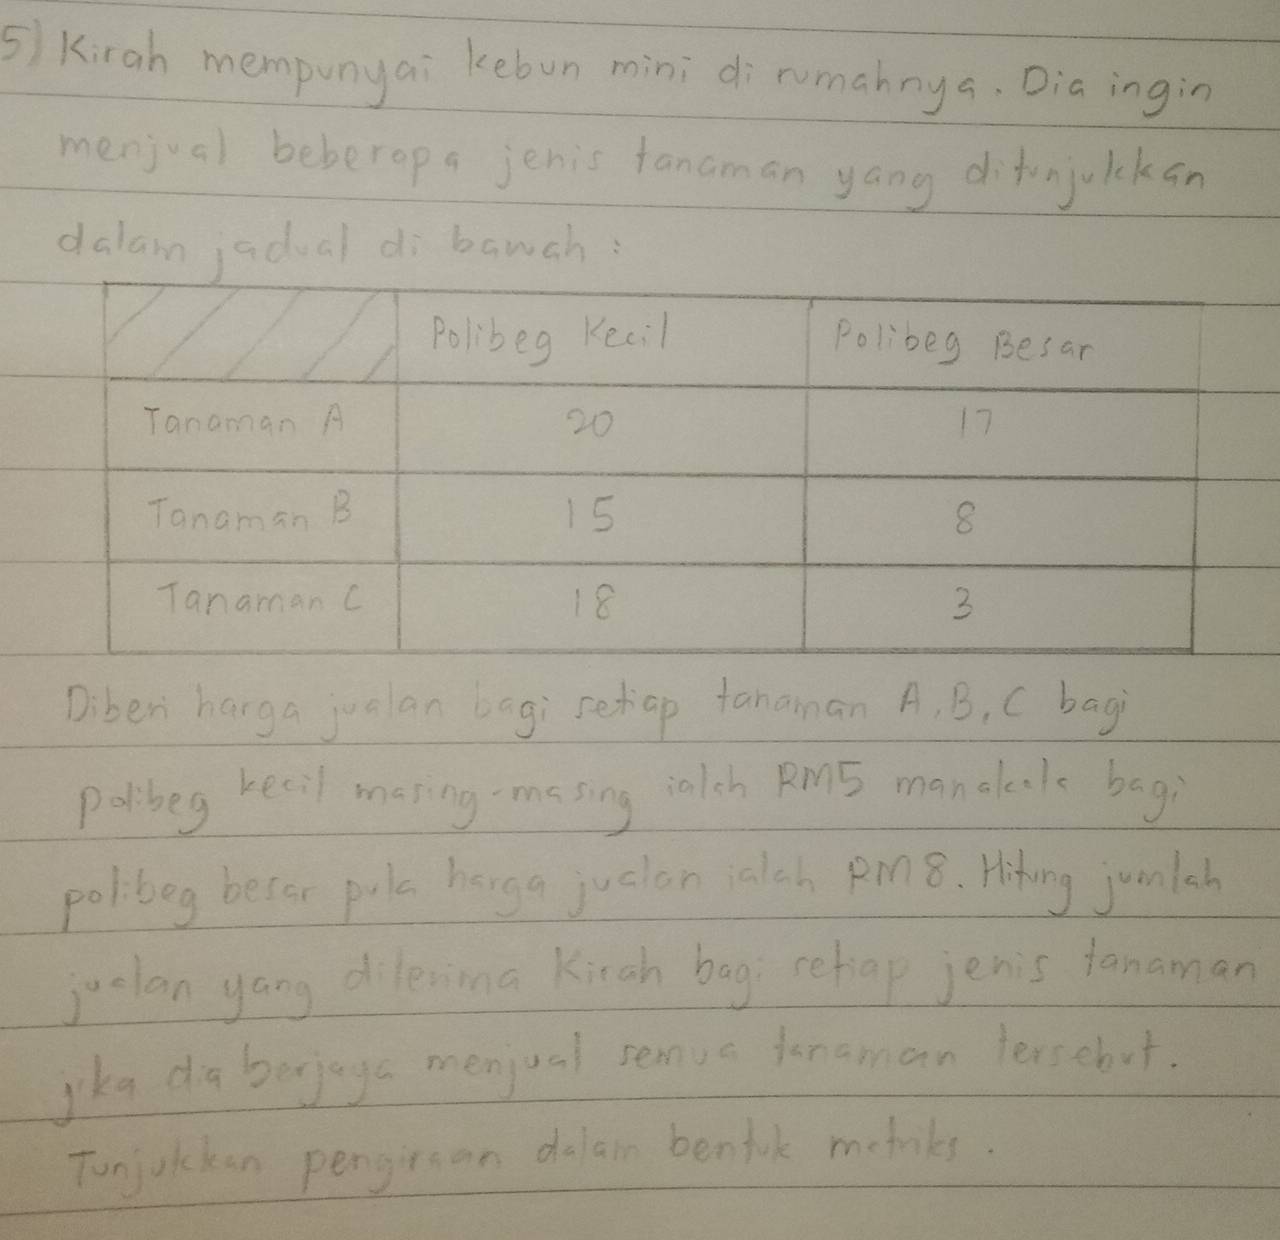 5) Kirah mempunyai kebun mini di rumahnya. Dia ingin
menjual beberapa jenis tanaman yang ditunjukkan
dalam jadual di bawah :
Polibeg Kecil Polibeg Besar
Tanaman A 20 17
Tanaman B 15 8
Tanaman C 18 3
Diberi harga jualan bagi setiap tanaman A, B, C bagi
polibeg kecil masing-masing ialah RM5 manakala bagi
polibeg besar pula harga jualan ialah RM8. Hitung jumlah
jualan yang diterima Kirah bagi setiap jenis tanaman
jika dia berjaya menjual semua tanaman tersebut.
Tunjukkan pengiraan dalam bentuk matriks.